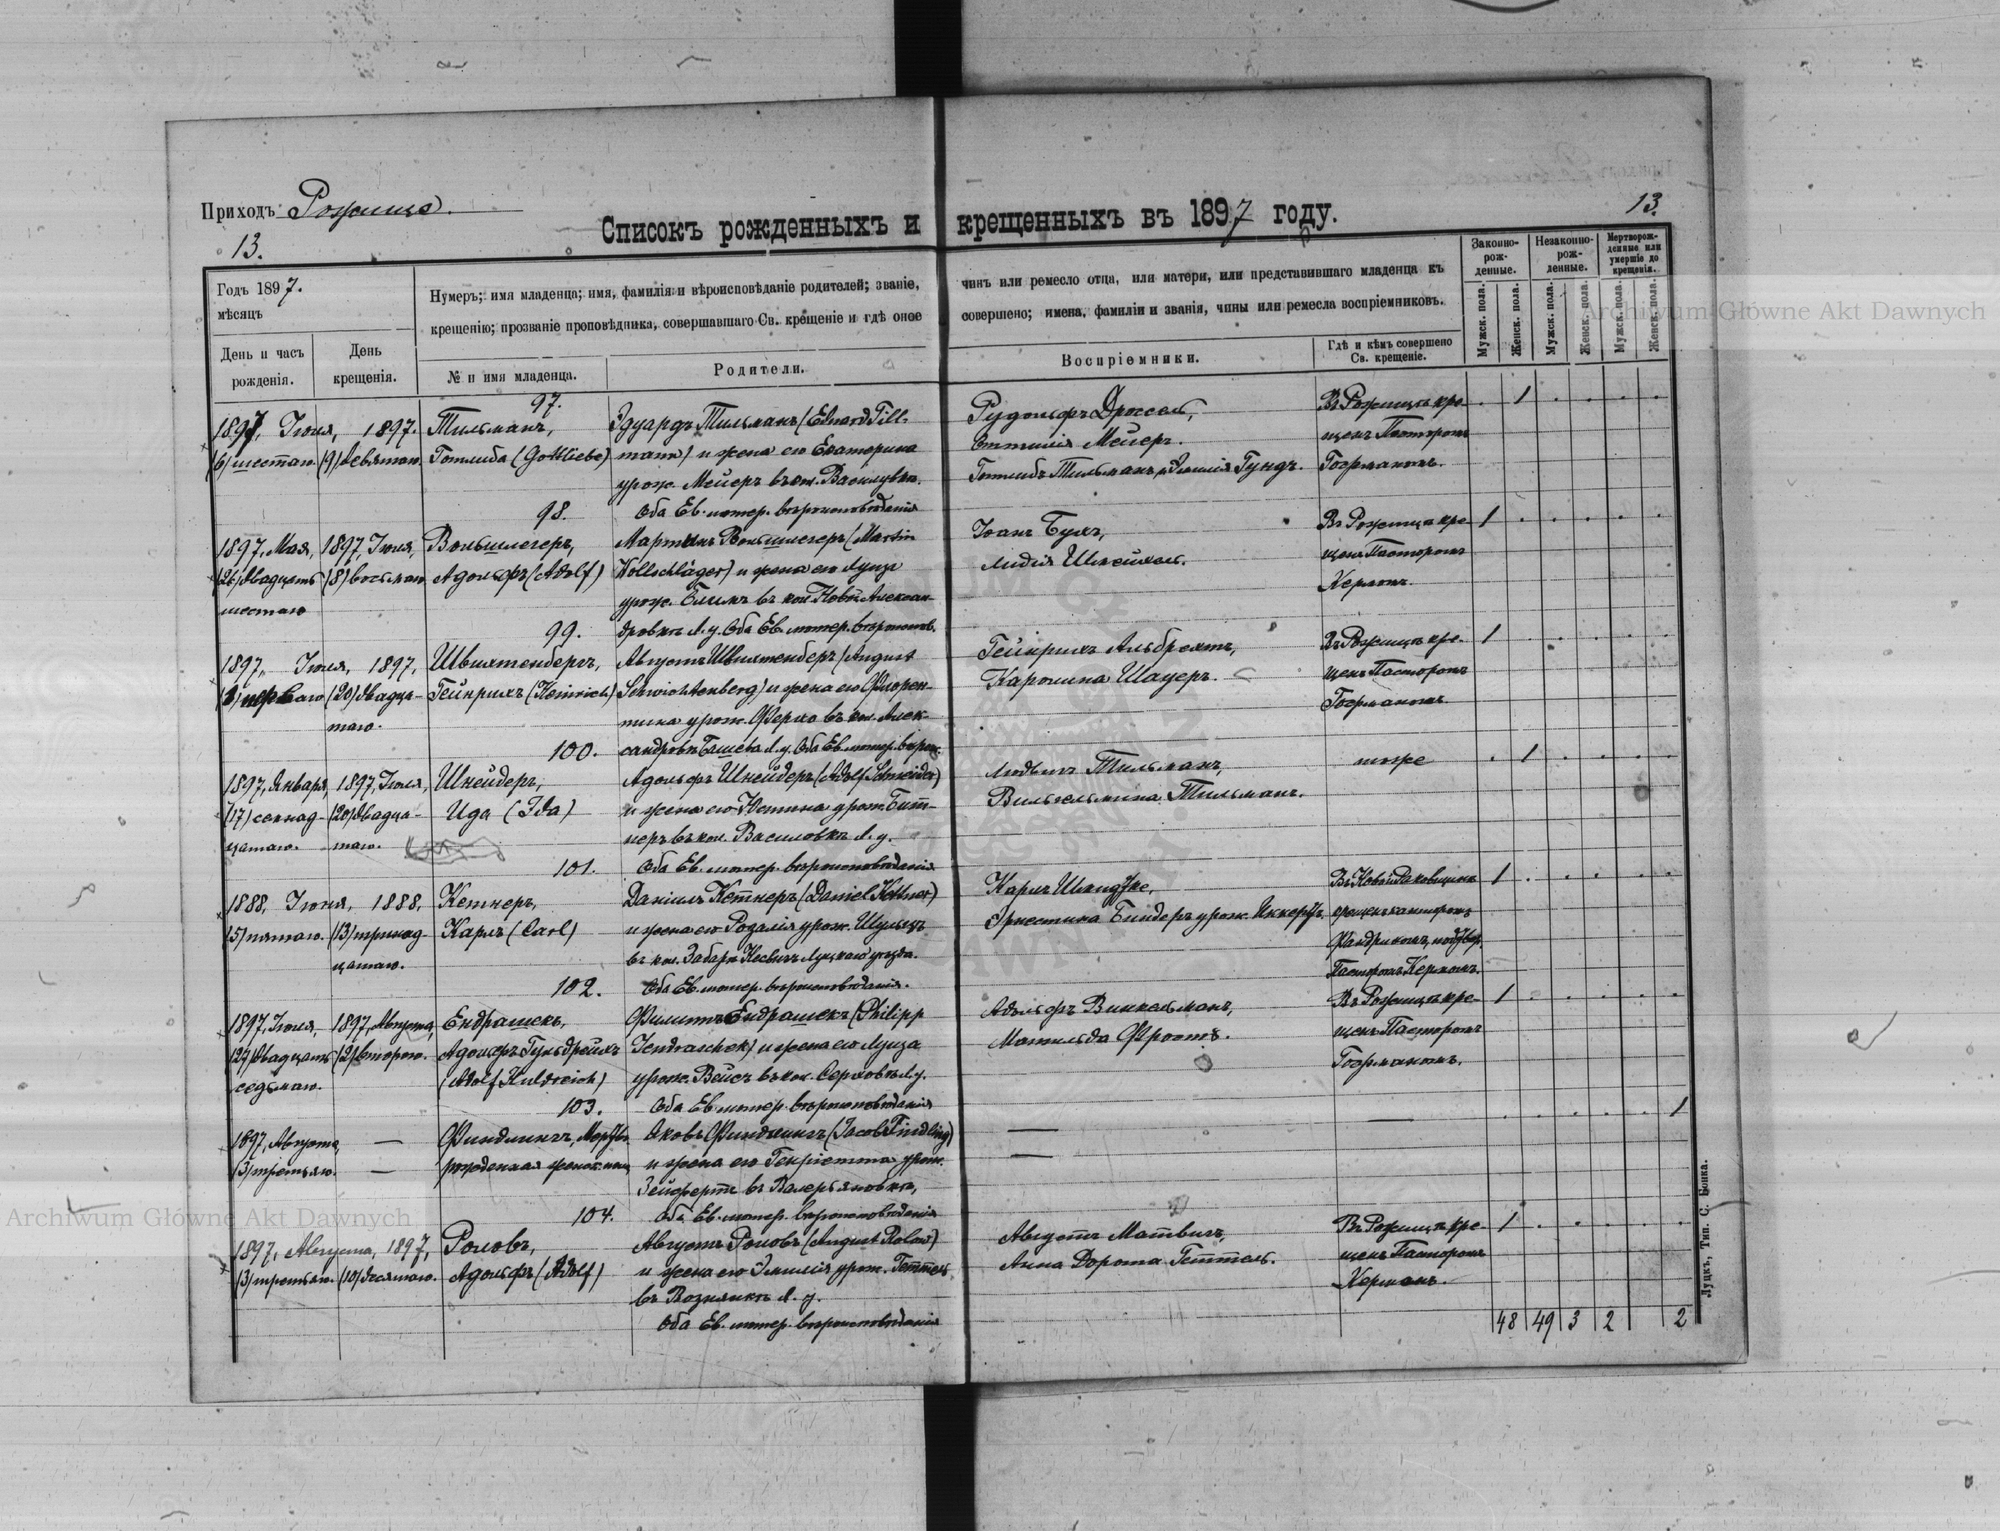 Приходъ Рожище.
13.
13.
Списокъ рожденныхъ и крещенныхъ въ 1897 году.
Годъ 1897.
мѣсяцъ
День и часъ рожденія.
День крещенія.
Нумеръ; имя младенца; имя, фамилія и вѣроисповѣданіе родителей; званіе, чинъ или ремесло отца, или матери, или представившаго младенца къ
крещенію; прозваніе проповѣдника, совершавшаго Св. крещеніе и гдѣ оное совершено; имена, фамиліи и званія, чины или ремесла воспріемниковъ.
№ и имя младенца.
Родители.
Воспріемники.
Гдѣ и кѣмъ совершено Св. крещеніе.
Законно-рож-денные.
Незаконно-рож-денные.
Мертворож-денные или умершіе до крещенія.
Мужск. пола.
Женск. пола.
Мужск. пола.
Женск. пола.
Мужск. пола.
Женск. пола.
97.
1897, Іюня, 1897.
(6) шестаго (9) девятаго
Тильманъ,
Готлиба (Gottliebe)
Эдуардъ Тильманъ (Eduard Till-
mann) и жена его Екатерина
урож. Мейеръ въ кол.
Оба Ев. лютер. вѣроисповѣданія
Рудольфъ Дроссель,
Оттилія Мейеръ.
Готлибъ Тильманъ, Эмилія Гундъ.
Въ Рожищѣ кре-
щенъ Пасторомъ
Гофманомъ.
1
98.
1897, Мая, 1897, Іюня,
(26) двадцать (8) восьмаго
шестаго
Вольшлегеръ,
Адольфъ (Adolf)
Мартинъ Вольшлегеръ (Martin
Wollschläger) и жена его Луиза
урож. Блимъ въ кол. Новой Алексан-
дровкѣ Л. у. Оба Ев. лютер. вѣроиспов.
Іоанъ Бухъ,
Лидія
Въ Рожищѣ кре-
щенъ Пасторомъ
Керномъ.
1
99.
1897, Іюля, 1897,
(1) перваго (20) двадца-
таго.
Швихтенбергъ,
Гейнрихъ (Heinrich)
Августъ Швихтенбергъ (August
Schwichtenberg) и жена его Флорен-
тина урож. въ кол. Алек-
Л. у. Оба Ев. лютер. вѣроис.
Гейнрихъ Альбрехтъ,
Каролина Шауеръ.
Въ Рожищѣ кре-
щенъ Пасторомъ
Гофманомъ.
1
100.
1897, Января, 1897, Іюля,
(17) семнад- (20) двадца-
цатаго. таго.
Шнейдеръ,
Ида (Ida)
Адольфъ Шнейдеръ (Adolf Schneider)
и жена его Юстина урож. Бит-
неръ въ кол. Василовкѣ Л. у.
Оба Ев. лютер. вѣроисповѣданія
Людвигъ Тильманъ,
Вильгельмина Тильманъ.
тоже
1
101.
1888, Іюня, 1888,
(5) пятаго. (13) тринад-
цатаго.
Кетнеръ,
Карлъ (Carl)
Даніилъ Кетнеръ (Daniel Kettner)
и жена его Розалія урож. Шульцъ
въ кол. Луцкаго уѣзда.
Оба Ев. лютер. вѣроисповѣданія.
Карлъ
Эрнестина Биндеръ урож.
крещенъ канторомъ
Пасторомъ Керномъ.
1
102.
1897, Іюля, 1897, Августа,
(27) двадцать (2) второго.
седьмаго.
Ендрашекъ,
Адольфъ Гульдрейхъ
(Adolf Huldreich)
Филиппъ Ендрашекъ (Philipp
Jendraschek) и жена его Луиза
урож. Вейсъ въ кол. Л. у.
Оба Ев. лютер. вѣроисповѣданія
Адольфъ Винкельманъ,
Матильда Фростъ.
Въ Рожищѣ кре-
щенъ Пасторомъ
Гофманомъ.
1
103.
1897, Августа, —
(3) третьяго. —
Финдлингъ, Мертво-
рожденная женск. пола
Яковъ Финдлингъ (Jacob Findling)
и жена его Генріетта урож.
Зейфертъ въ Валерьяновкѣ,
Оба Ев. лютер. вѣроисповѣданія
1
104.
1897, Августа, 1897,
(3) третьяго. (10) десятаго.
Роловъ,
Адольфъ (Adolf)
Августъ Роловъ (August Rolow)
и жена его Эмилія урож. Геттель
въ Л. у.
Оба Ев. лютер. вѣроисповѣданія
Августъ
Анна Дорота Геттель.
Въ Рожищѣ кре-
щенъ Пасторомъ
Керномъ.
1
48 49 3 2 2
Луцкъ, Тип. С. Бонка.
Archiwum Główne Akt Dawnych
Archiwum Główne Akt Dawnych